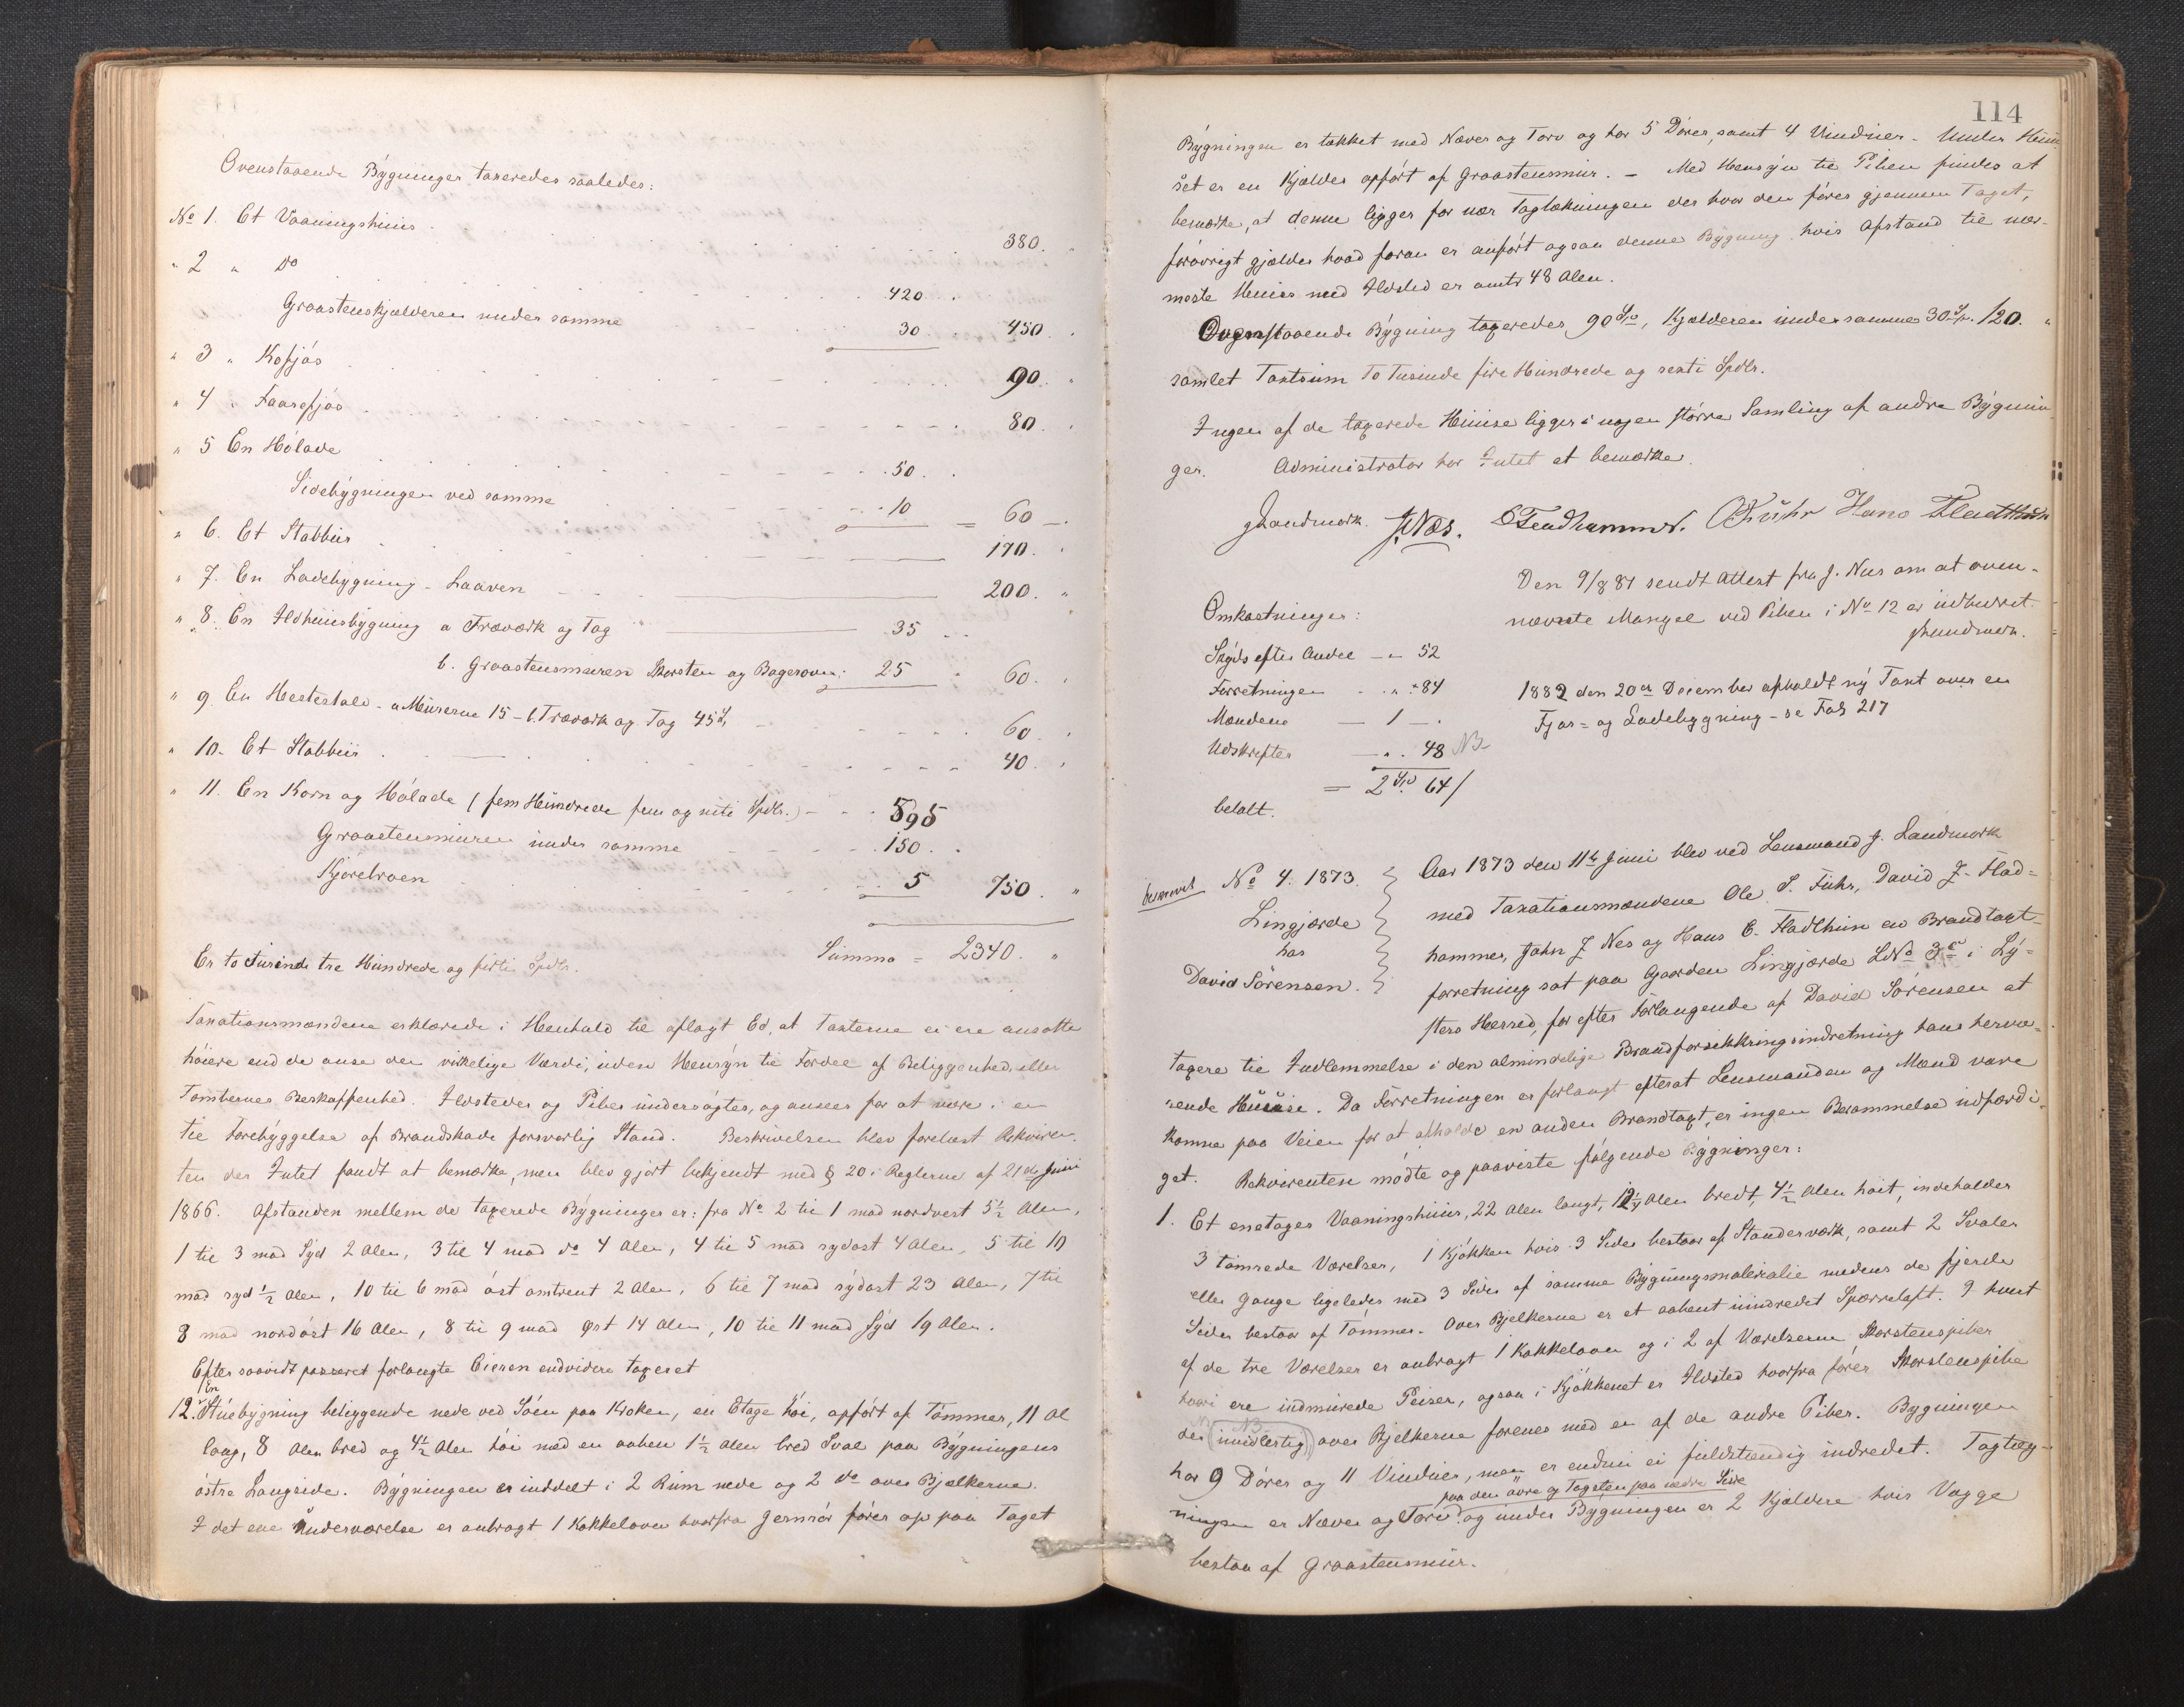 Ovenstaaende Bygninger taxeredes saaledes:
No 1. Et Vaaningshuus 380. "
" 2 " do 420.
Graastenskjælderen under samme 30 450. "
" 3 " Kofjøs 90. "
" 4 " Faarefjøs 80. "
" 5 En Hølade 50.
Sidebygningen ved samme 10 = 60 —
" 6. Et Stabbur 170. "
" 7. En Ladebygning - Laaven 200. "
" 8. En Ildhuusbygning a Træværk og Tag 35
b. Graastensmuren Skorsten og Bagerovn: 25 60. "
" 9 En Hestestald - a Murerne 15 - b. Træværk og Tag 45 60. "
" 10. Et Stabbur 40. "
" 11. En Korn og Hølade (fem Hundrede fem og niti Spdlr.) 595
Graastensmuren under samme 150.
Kjørebroen 5 750. "
Summa = 2340. "
Er to Tusinde tre Hundrede og firti Spdlr.
Taxationsmændene erklærede i Henhold til aflagt Ed, at Taxterne ei ere ansatte
høiere end de anse den virkelige Værdi, uden Hensyn til Fordel af Beliggenhed eller
Tomternes Beskaffenhed. Ildsteder og Piber undersøgtes, og ansees for at være i en
til Forebyggelse af Brandskade forsvarlig Stand. Beskrivelsen blev forelæst Rekviren-
ten der Intet fandt at bemærke, men blev gjort bekjendt med § 20 i Reglerne af 21de Juni
1866. Afstanden mellem de taxerede Bygninger er: fra No 2 til 1 mod nordvest 5½ Alen,
1 til 3 mod Syd 2 Alen, 3 til 4 mod do 4 Alen, 4 til 5 mod sydost 4 Alen, 5 til 10
mod syd ½ Alen, 10 til 6 mod øst omtrent 2 Alen, 6 til 7 mod sydost 23 Alen, 7 til
8 mod nordøst 16 Alen, 8 til 9 mod øst 14 Alen, 10 til 11 mod Syd 19 Alen.
Efter saavidt passeret forlangte Eieren endvidere taxeret
En
12. Stuebygning beliggende nede ved Søen paa Kroken, en Etage høi, opført af Tømmer, 11 Al
lang, 8 Alen bred og 4½ Alen høi med en aaben 1½ Alen bred Sval paa Bygningens
østre Langside. Bygningen er inddelt i 2 Rum nede og 2 do over Bjelkerne.
I det ene Underværelse er anbragt 1 Kakkelovn hvorfra Jernrør fører op paa Taget
114
Bygningen er tækket med Næver og Torv og har 5 Døre, samt 4 Vinduer. - Under Huu
set er en Kjælder opført af Graastensmur. - Med Hensyn til Piben findes at
bemærke, at denne ligger for nær Tagtækningen der hvor den føres gjennem Taget,
forøvrigt gjælder hvad foran er anført ogsaa denne Bygning hvis Afstand til nær-
meste Huus med Ildsted er omtr 48 Alen.
Ovenstaaende Bygning taxeredes 90 Sp, Kjælderen under samme 30 Sp. 120. "
samlet Taxtsum To Tusinde fire Hundrede og sexti Spdlr.
Ingen af de taxerede Huuse ligger i nogen større Samling af andre Bygnin-
ger. Administrator har Intet at bemærke.
J Landmark. J. Næs. O Fuhr Hans
Den 9/8 81 sendt Attest fra J. Nes om at oven-
nævnte Mangel ved Piben i No 12 er udbedret.
JLandmark.
Omkostninger:
Skyds efter Andel - " 52
Forretningen - " " 84
Mændene — 1 — .
Udskrifter — " . 48 NB
= 2 Sp. 64/
betalt.
1882 den 20de December afholdt ny Taxt over en
Fjøs- og Ladebygning - se Fol 217
No 4. 1873.
Lingjærde
hos
David Sørensen.
Aar 1873 den 11te Juni blev ved Lensmand J. Landmark
med Taxationsmændene Ole S. Fuhr, David J. Flad-
hammer, John J Nes og Hans E. Fladthun en Brandtaxt-
forretning sat paa Gaarden Lingjærde LNo 3 i Ly-
sters Herred, for efter Forlangende af David Sørensen at
taxere til Indlemmelse i den almindelige Brandforsikkringsindretning hans hervæ-
rende Huuse. Da Forretningen er forlangt efterat Lensmanden og Mænd vare
komne paa Veien for at afholde en anden Brandtaxt, er ingen Berammelse udfærdi-
get. Rekvirenten mødte og paaviste følgende Bygninger:
1. Et enetages Vaaningshuus, 22 Alen langt, 12¼ Alen bredt, 4½ Alen høit, indeholder
3 tømrede Værelser, 1 Kjøkken hvis 3 Sider bestaar af Standerværk, samt 2 Svaler
eller Gange ligeledes med 3 Sider af samme Bygningsmateriale medens de fjerde
Sider bestaar af Tømmer. Over Bjelkerne er et aabent uindredet Sperreloft. I hvert
af de tre Værelser er anbragt 1 Kakkelovn og i 2 af Værelserne Skorstenspiber
hvori ere indmurede Peiser, ogsaa i Kjøkkenet er Ildsted hvorfra fører Skorstenspibe
NB
der (umidlertig) over Bjelkerne forenes med en af de andre Piber. Bygningen
har 9 Døre og 11 Vinduer, men er endnu ei fuldstændig indredet. Tagtæg-
paa den øvre og Tagsten paa nedre Side
ningen er Næver og Torv og under Bygningen er 2 Kjældere hvis Vægge
bestaa af Graastensmur.